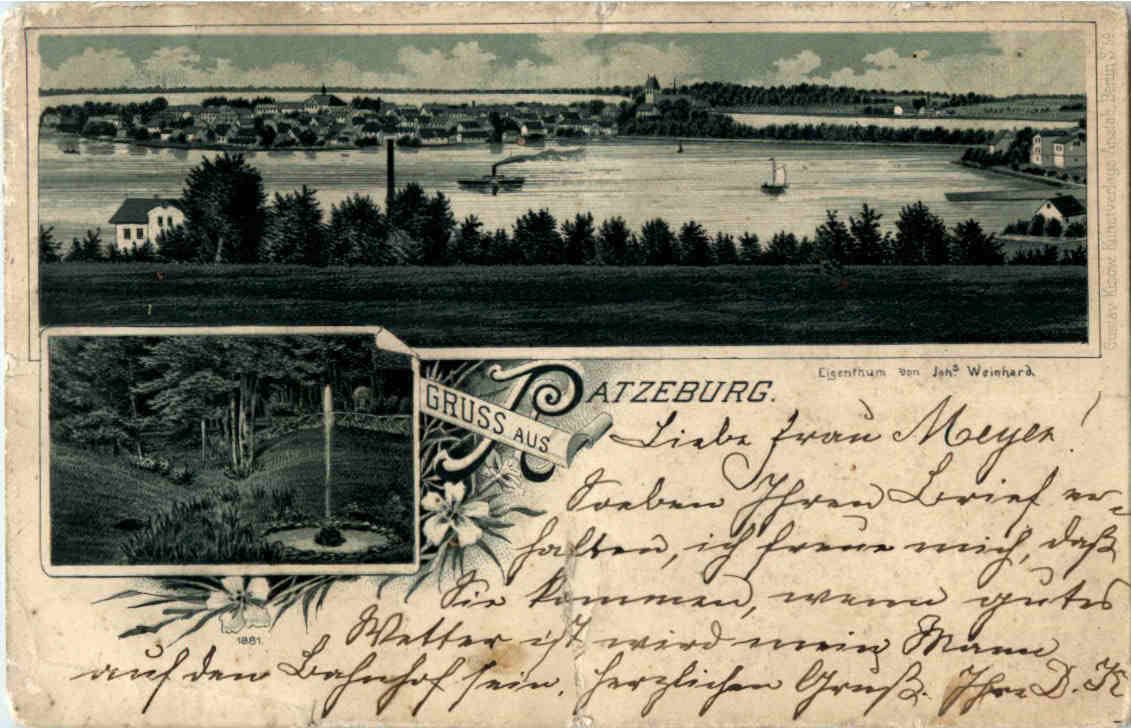 GRUSS AUS
RATZEBURG.
Eigenthum von Johs. Weinhard.
Liebe Frau Meyer!
Soeben Ihren Brief er-
halten, ich freue mich, daß
Sie kommen, wenn gutes
Wetter ist wird mein Mann
auf den Bahnhof sein. herzlichen Gruß. Ihre D. K
1881.
Gustav Kunstverlags Anstalt, Berlin S.